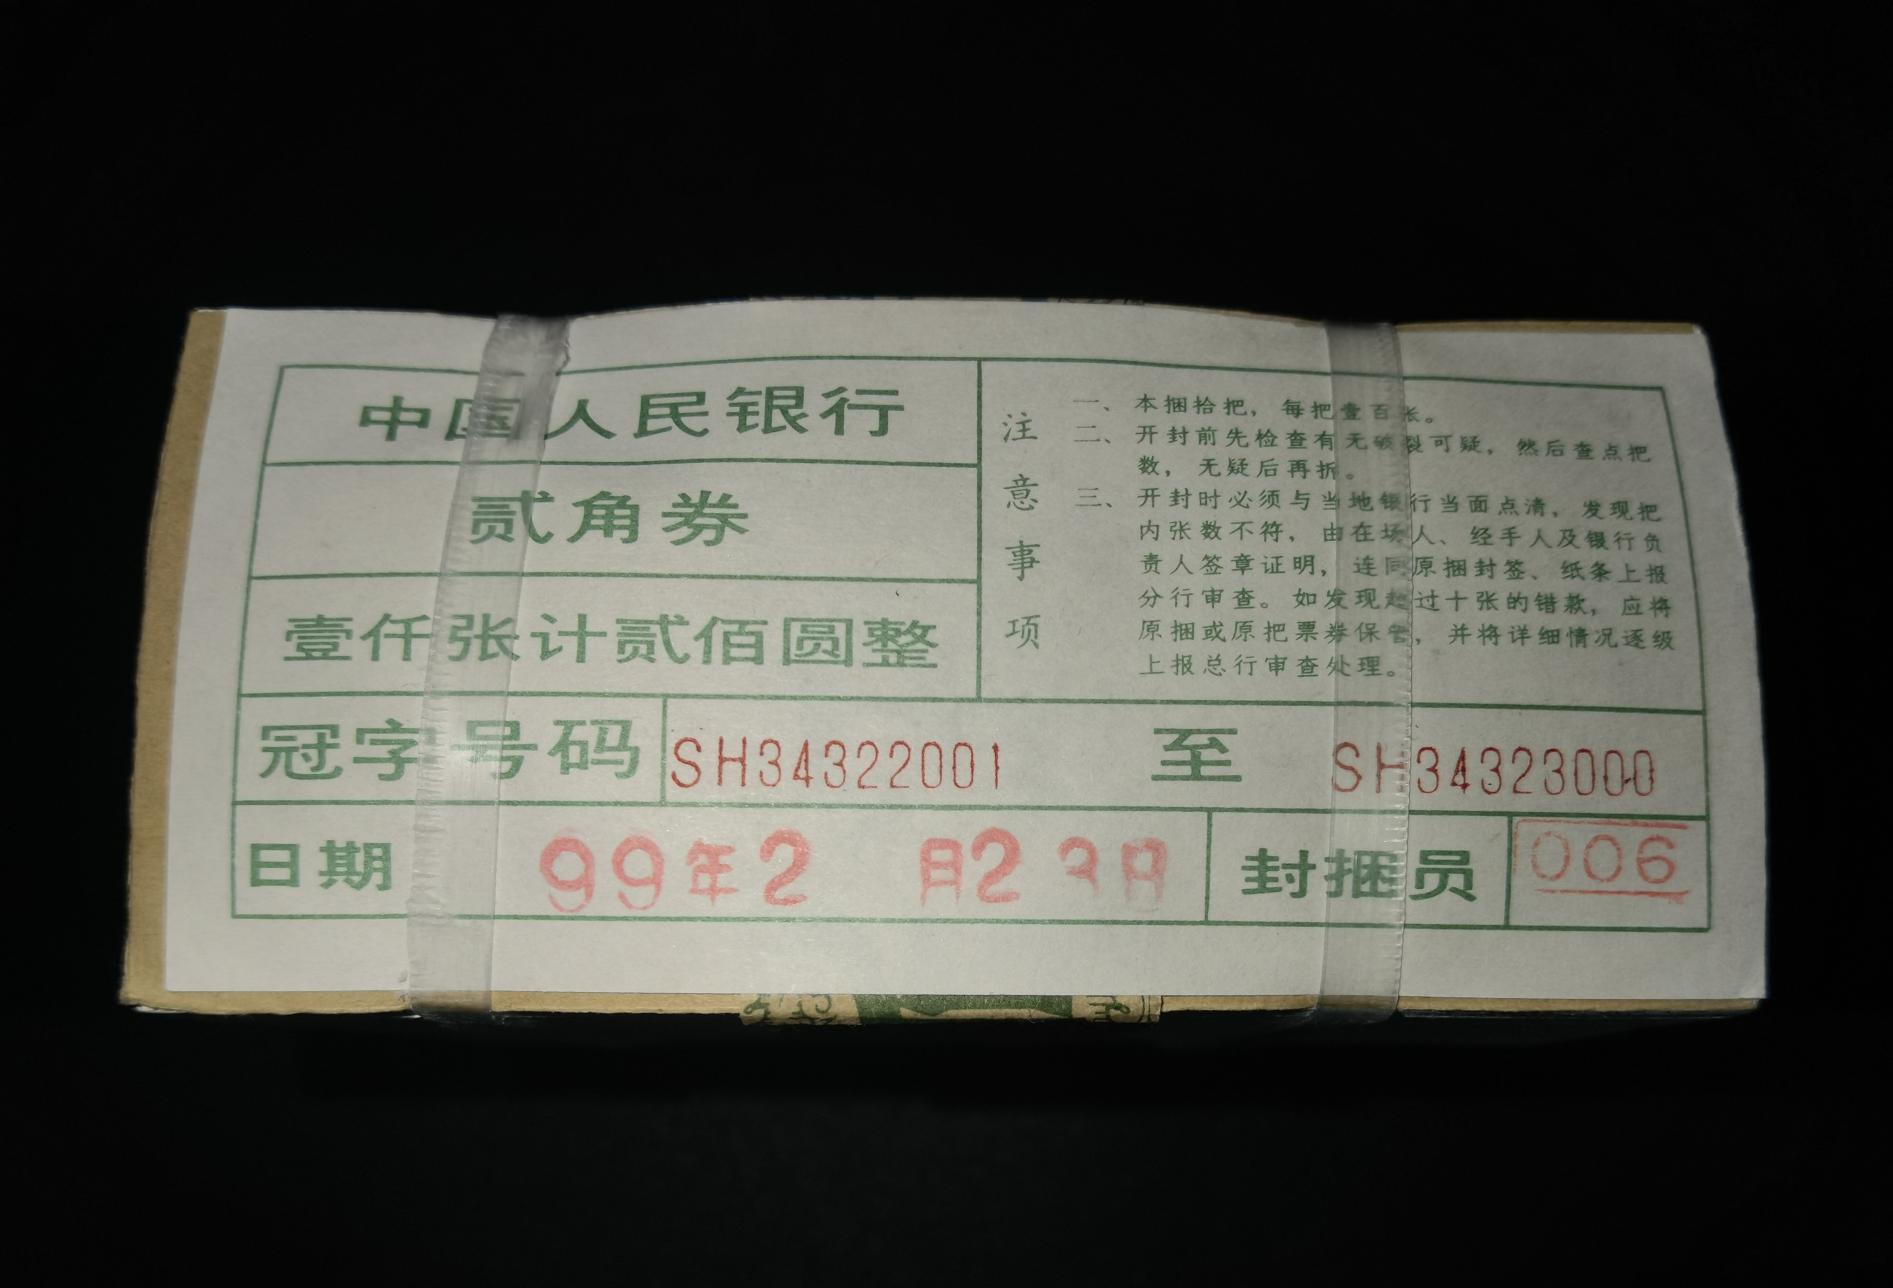 中国人民银行
贰角券
壹仟张计贰佰圆整
注意事项
一、本捆拾把，每把壹百张。
二、开封前先检查有无破裂可疑，然后查点把
数，无疑后再拆。
三、开封时必须与当地银行当面点清，发现把
内张数不符，由在场人、经手人及银行负
责人签章证明，连同原捆封签、纸条上报
分行审查。如发现超过十张的错款，应将
原捆或原把票券保管，并将详细情况逐级
上报总行审查处理。
冠字号码 SH34322001 至 SH34323000
日期 99年2 月2 日 封捆员 006